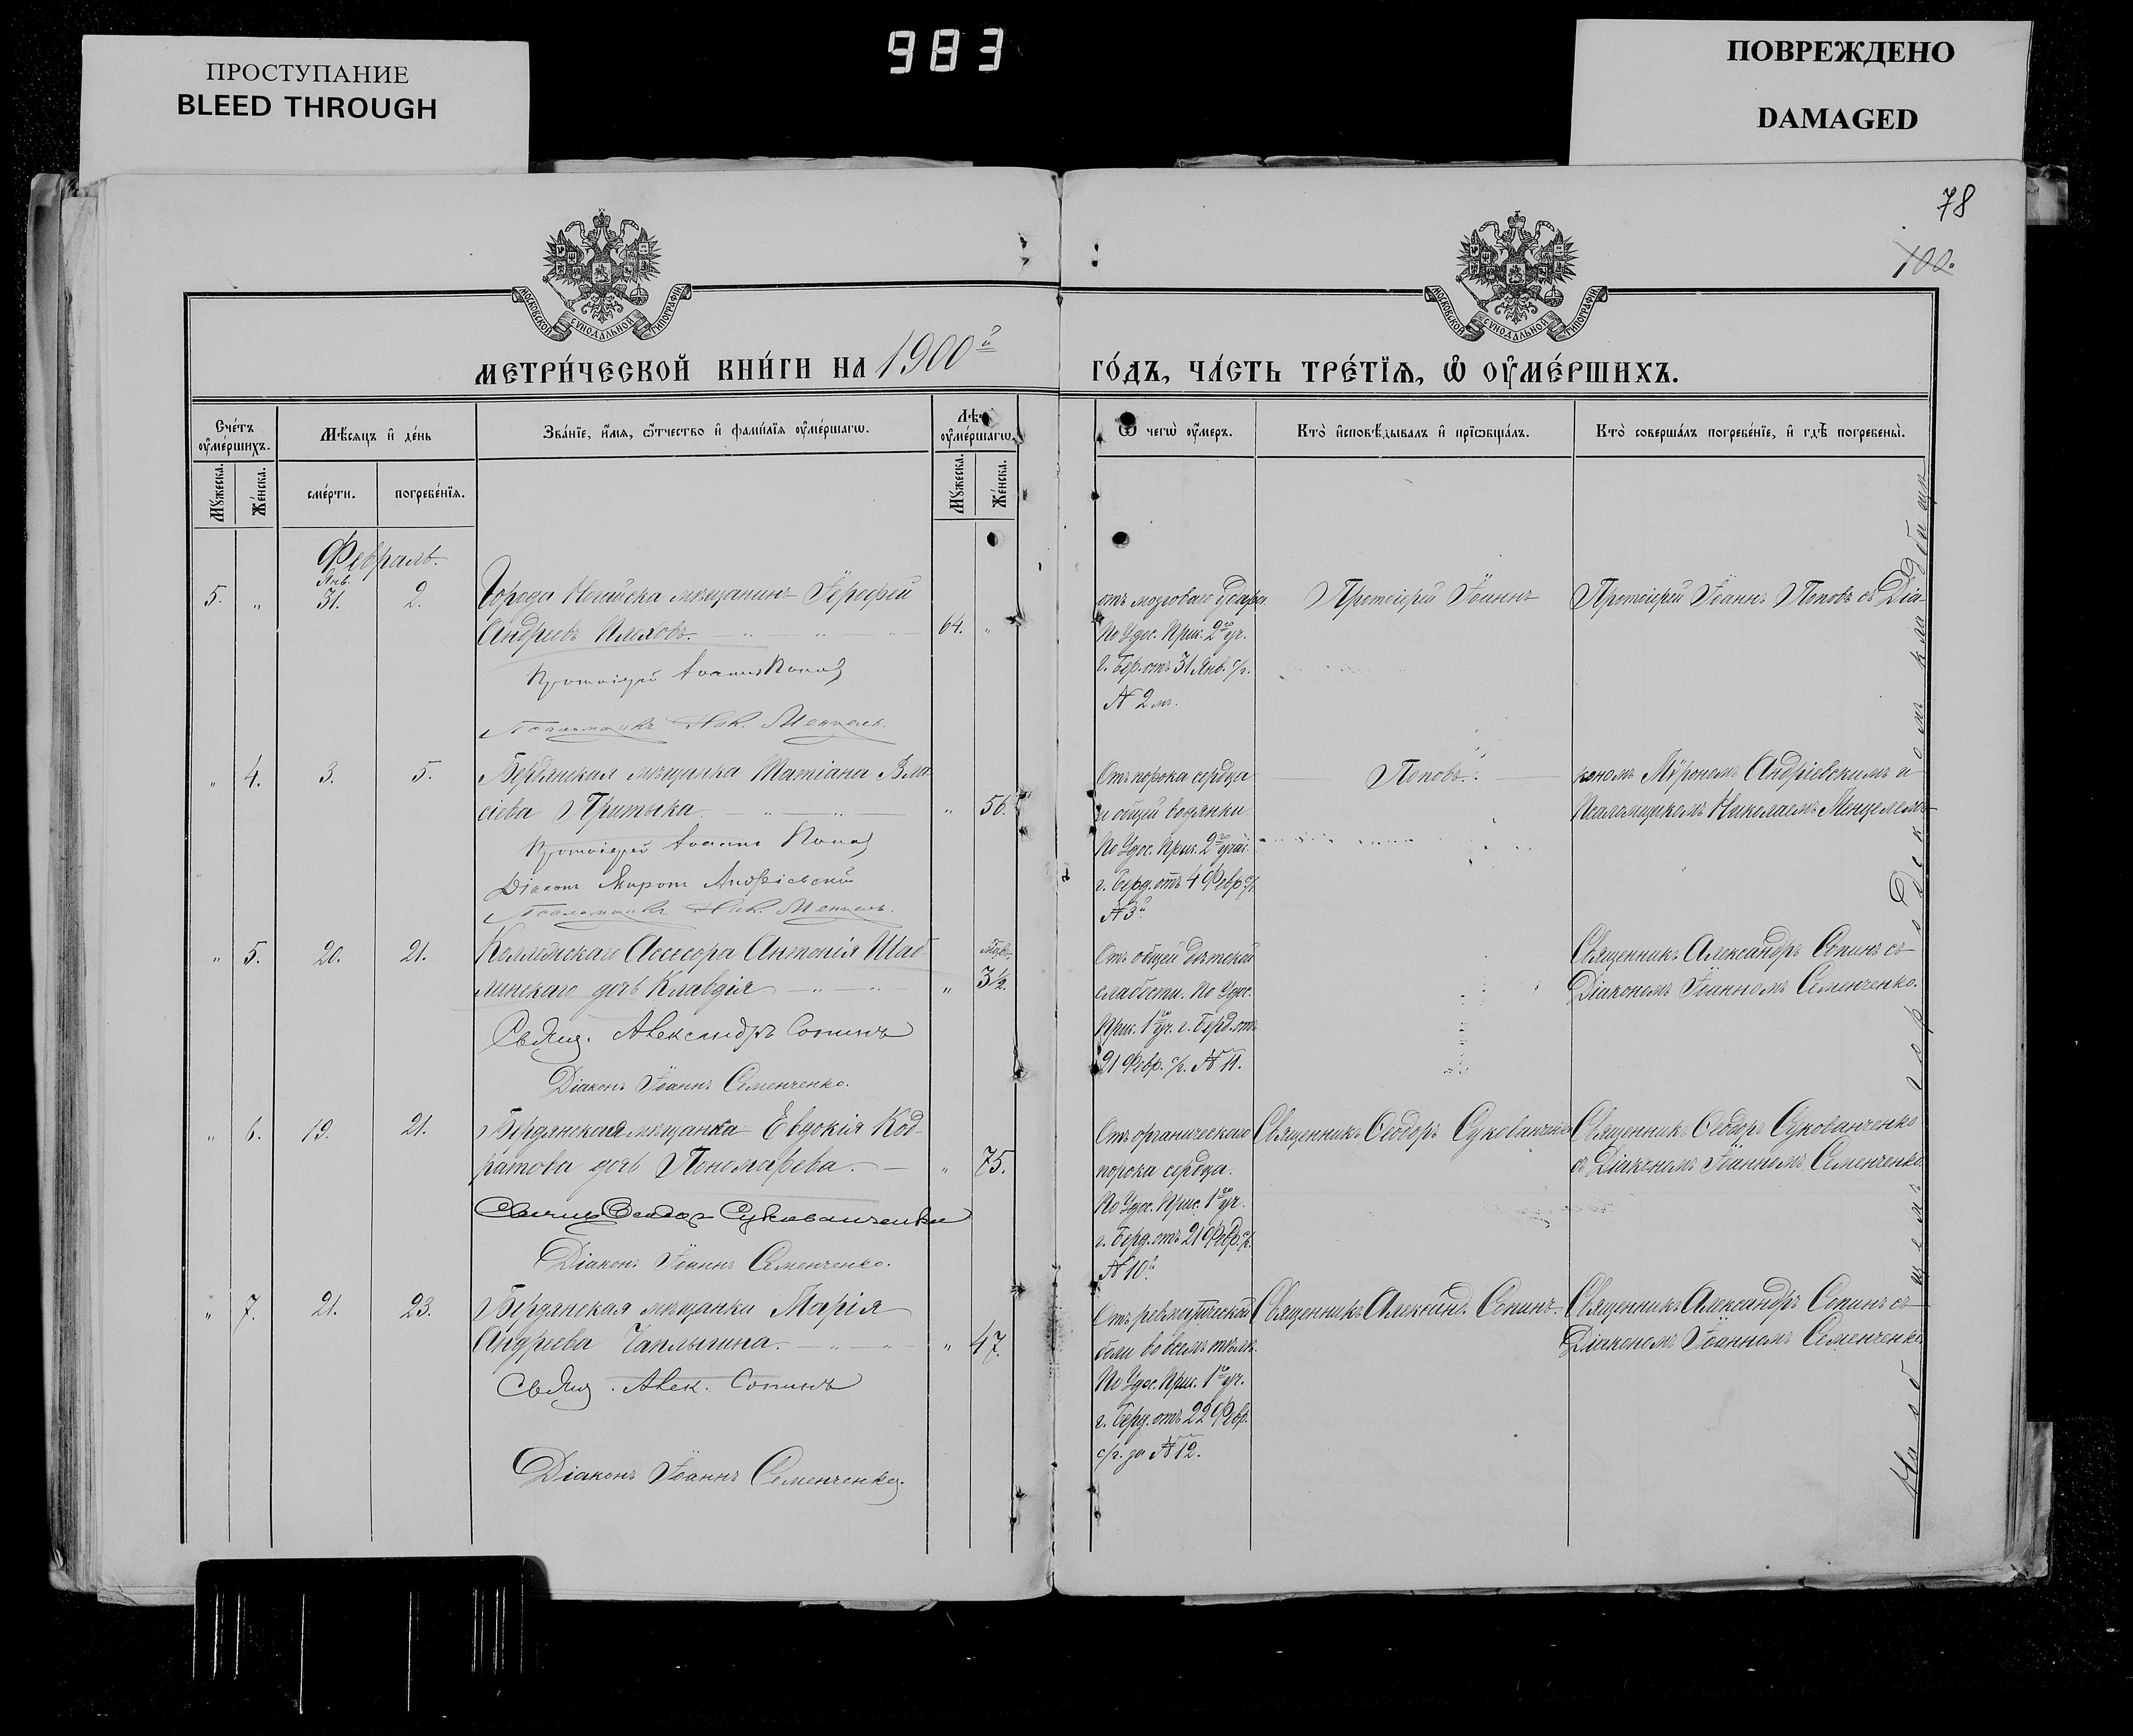 983
ПРОСТУПАНИЕ
BLEED THROUGH
ПОВРЕЖДЕНО
DAMAGED
78
100.
МОСКОВСКОЙ СѴНОДАЛЬНОЙ ТИПОГРАФІИ
МОСКОВСКОЙ СѴНОДАЛЬНОЙ ТИПОГРАФІИ
МЕТРИ́ЧЕСКОЙ КНИ́ГИ НА 1900й ГО́ДЪ, ЧА́СТЬ ТРЕ́ТЇѦ, Ѡ ОУМЕ́РШИХЪ.
Сче́тъ оуме́ршихъ.
Мѣсяцъ и де́нь
Зва́нїе, и́мя, ѻтчество и фами́лїя оуме́ршагѡ.
Лѣ оуме́ршагѡ.
Ѿ чегѡ оу́меръ.
Кто̀ и҆сповѣ́дывалъ и҆ прїѡбща́лъ.
Кто̀ соверша́лъ погребе́нїе, и҆ гдѣ̀ погребены̀.
Мꙋжеска.
Же́нска.
сме́рти.
погребе́нїя.
Мꙋжеска.
Же́нска.
Февраль.
5. " Янв. 31. 2. Города Ногайска мѣщанинъ Іерофей
Андреевъ Плеховъ. 64. "
Протоіерей Іоаннъ Поповъ
Псаломщикъ Ник. Менцель.
отъ мозговаго удара.
По Удос. Прис. 2го уч.
г. Бер. отъ 31 Янв. с/г.
№ 2м.
Протоіерей Іоаннъ
Протоіерей Іоаннъ Поповъ съ Діа-
" 4. 3. 5. Бердянская мѣщанка Татіана Вла-
сіева Притыка " 56.
Протоіерей Іоаннъ Поповъ
Діаконъ Миронъ Андріевскій
Псаломщикъ Ник. Менцель.
Отъ порока сердца
и общей водянки
По Удос. Прис. 2го учас.
г. Берд. отъ 4 Февр. с/г.
№ 3й
Поповъ.
кономъ Мѵрономъ Андріевскимъ и
Псаломщикомъ Николаемъ Менцелемъ
" 5. 20. 21. Коллежскаго Ассесора Антонія Шаб-
линскаго дочь Клавдія " 3½.
Свящ. Александръ Сопинъ
Діаконъ Іоаннъ Семенченко.
Отъ общей дѣтской
слабости. По Удос.
Прис. 1го уч. г. Берд. отъ
21 Февр. с/г. № 11.
Священникъ Александръ Сопинъ съ
Діакономъ Іоанномъ Семенченко.
" 6. 19. 21. Бердянская мѣщанка Евдокія Код-
ратова дочь Пономарева. " 75.
Священ. Ѳеодоръ Сукованченко
Діаконъ Іоаннъ Семенченко.
Отъ органическаго
порока сердца.
По Удос. Прис. 1го уч.
г. Берд. отъ 21 Февр. с/г.
№ 10й
Священникъ Ѳеодоръ Сукованченко
Священникъ Ѳеодоръ Сукованченко
съ Діакономъ Іоанномъ Семенченко.
" 7. 21. 23. Бердянская мѣщанка Марія
Андреева Чаплыгина. " 47.
Свящ. Алек. Сопинъ
Діаконъ Іоаннъ Семенченко.
Отъ ревматической
боли во всемъ тѣлѣ.
По Удос. Прис. 1го уч.
г. Берд. отъ 22 Февр.
с/г. за № 12.
Священникъ Александ. Сопинъ.
Священникъ Александръ Сопинъ съ
Діакономъ Іоанномъ Семенченко.